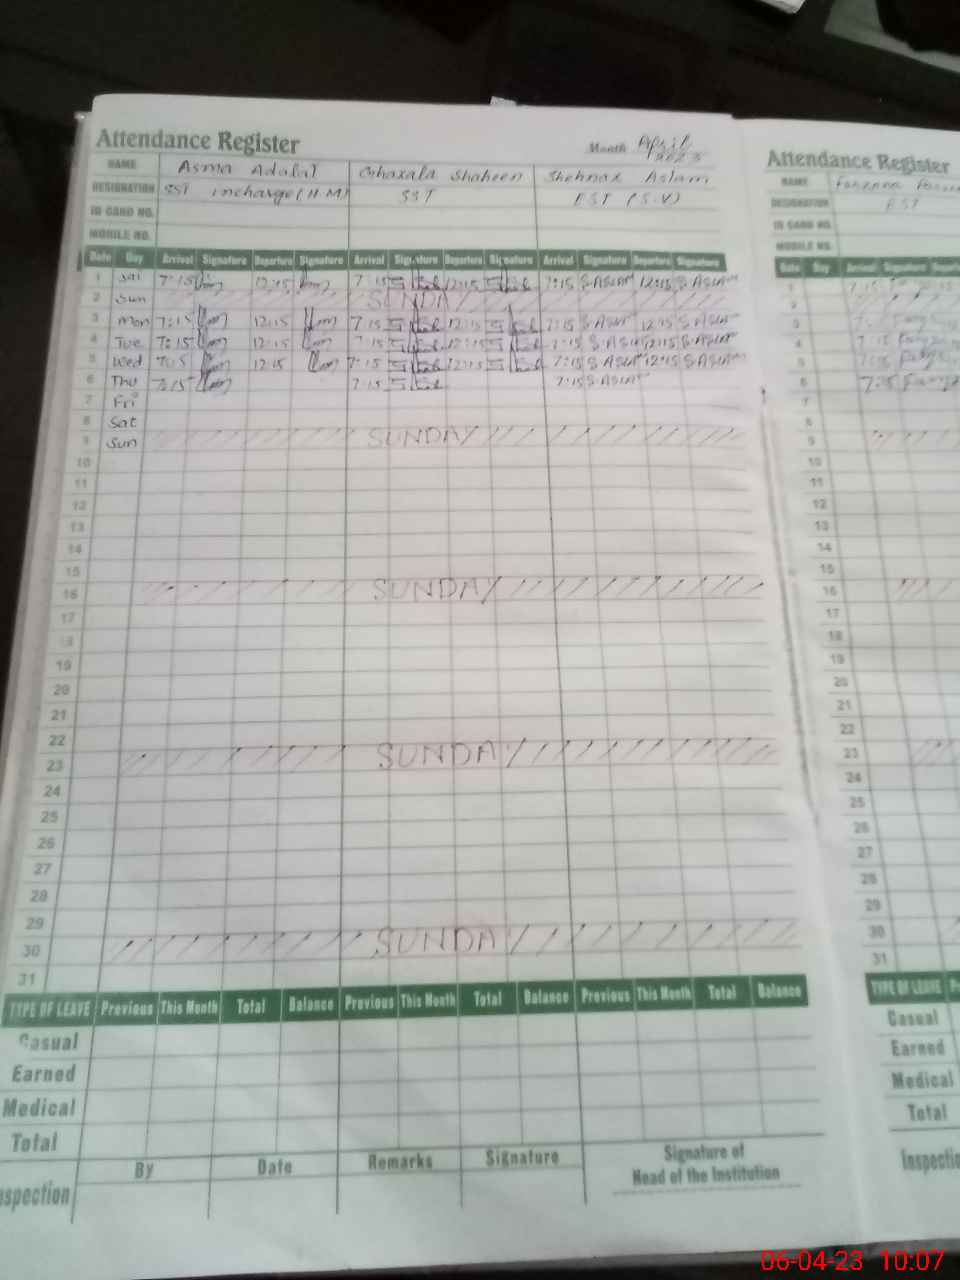 Attendance Register
Month April 2023
NAME Asma Adalat Ghazala Shaheen Shehnaz Aslam
DESIGNATION SST incharge (H.M) SST EST (S.V)
ID CARD NO.
MOBILE NO.
Date Day Arrival Signature Departure Signature Arrival Signature Departure Signature Arrival Signature Departure Signature
1 Sat 7:15 12:15 7:15 12:15 7:15 S.ASLAM 12:15 S.ASLAM
2 Sun SUNDAY
3 Mon 7:15 12:15 7:15 12:15 7:15 S.ASLAM 12:15 S.ASLAM
4 Tue 7:15 12:15 7:15 12:15 7:15 S.ASLAM 12:15 S.ASLAM
5 Wed 12:15 7:15 12:15 7:15 S.ASLAM 12:15 S.ASLAM
6 Thu 7:15 7:15 7:15 S.ASLAM
7 Fri
8 Sat
9 Sun SUNDAY
10
11
12
13
14
15
16 SUNDAY
17
18
19
20
21
22
23 SUNDAY
24
25
26
27
28
29
30 SUNDAY
31
TYPE OF LEAVE Previous This Month Total Balance Previous This Month Total Balance Previous This Month Total Balance
Casual
Earned
Medical
Total
By Date Remarks Signature
Signature of
Head of the Institution
Attendance Register
NAME
DESIGNATION EST
ID CARD NO.
MOBILE NO.
Date Day Arrival Signature
1 7:15
2
3
4 7:15
5 7:15
6 7:15
7
8
9
10
11
12
13
14
15
16
17
18
19
20
21
22
23
24
25
26
27
28
29
30
31
TYPE OF LEAVE
Casual
Earned
Medical
Total
06-04-23 10:07